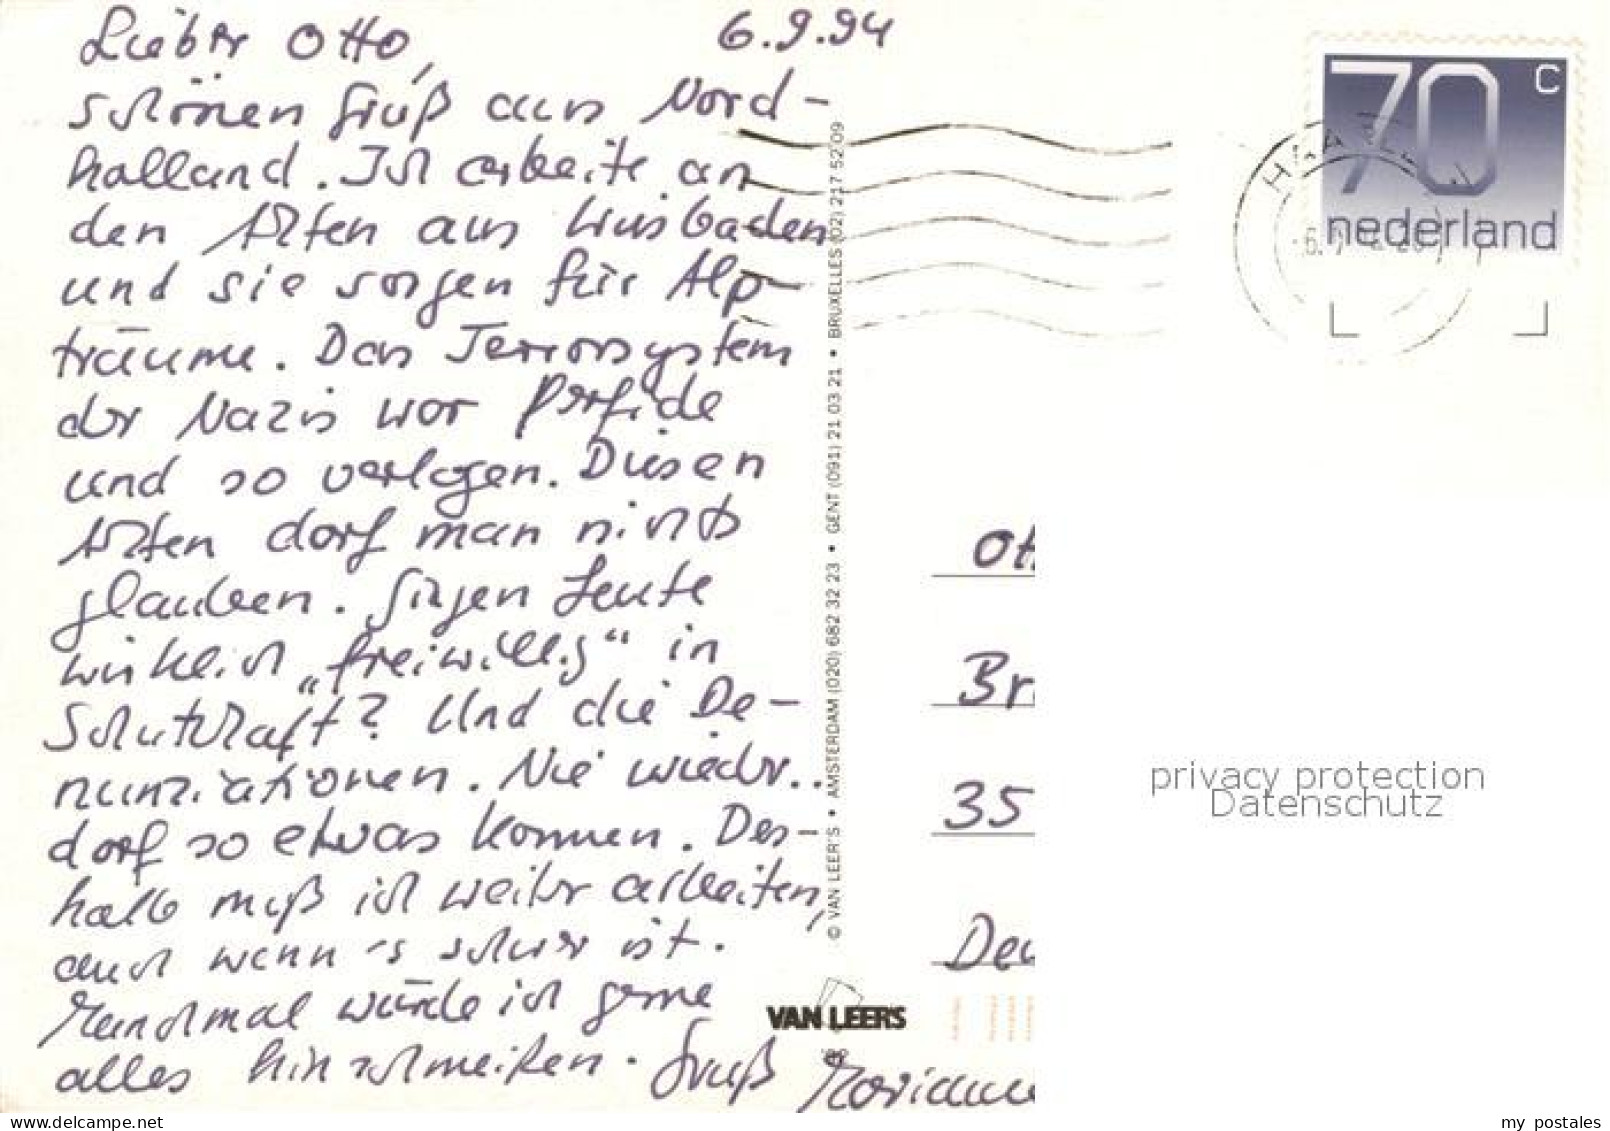 Lieber Otto,
6.9.94
schönen Gruß aus Nord-
holland. Ich arbeite an
den Akten aus Wiesbaden
und sie sorgen für Alp-
träume. Das Terrorsystem
der Nazis war perfide
und so verlogen. Diesen
Akten darf man nichts
glauben. Gingen Leute
wirklich „freiwillig“ in
Schutzhaft? Und die De-
nunziationen. Nie wieder..
darf so etwas kommen. Des-
halb muß ich weiter arbeiten,
auch wenn's schwer ist.
Manchmal würde ich gerne
alles hinschmeißen. Gruß Marianne
© VAN LEER'S • AMSTERDAM (020) 682 32 23 • GENT (091) 21 03 21 • BRUXELLES (02) 217 52 09
VAN LEER'S
70 c
nederland
Ott
Br
35
Deu
privacy protection
Datenschutz
www.oldthing.de
my postales